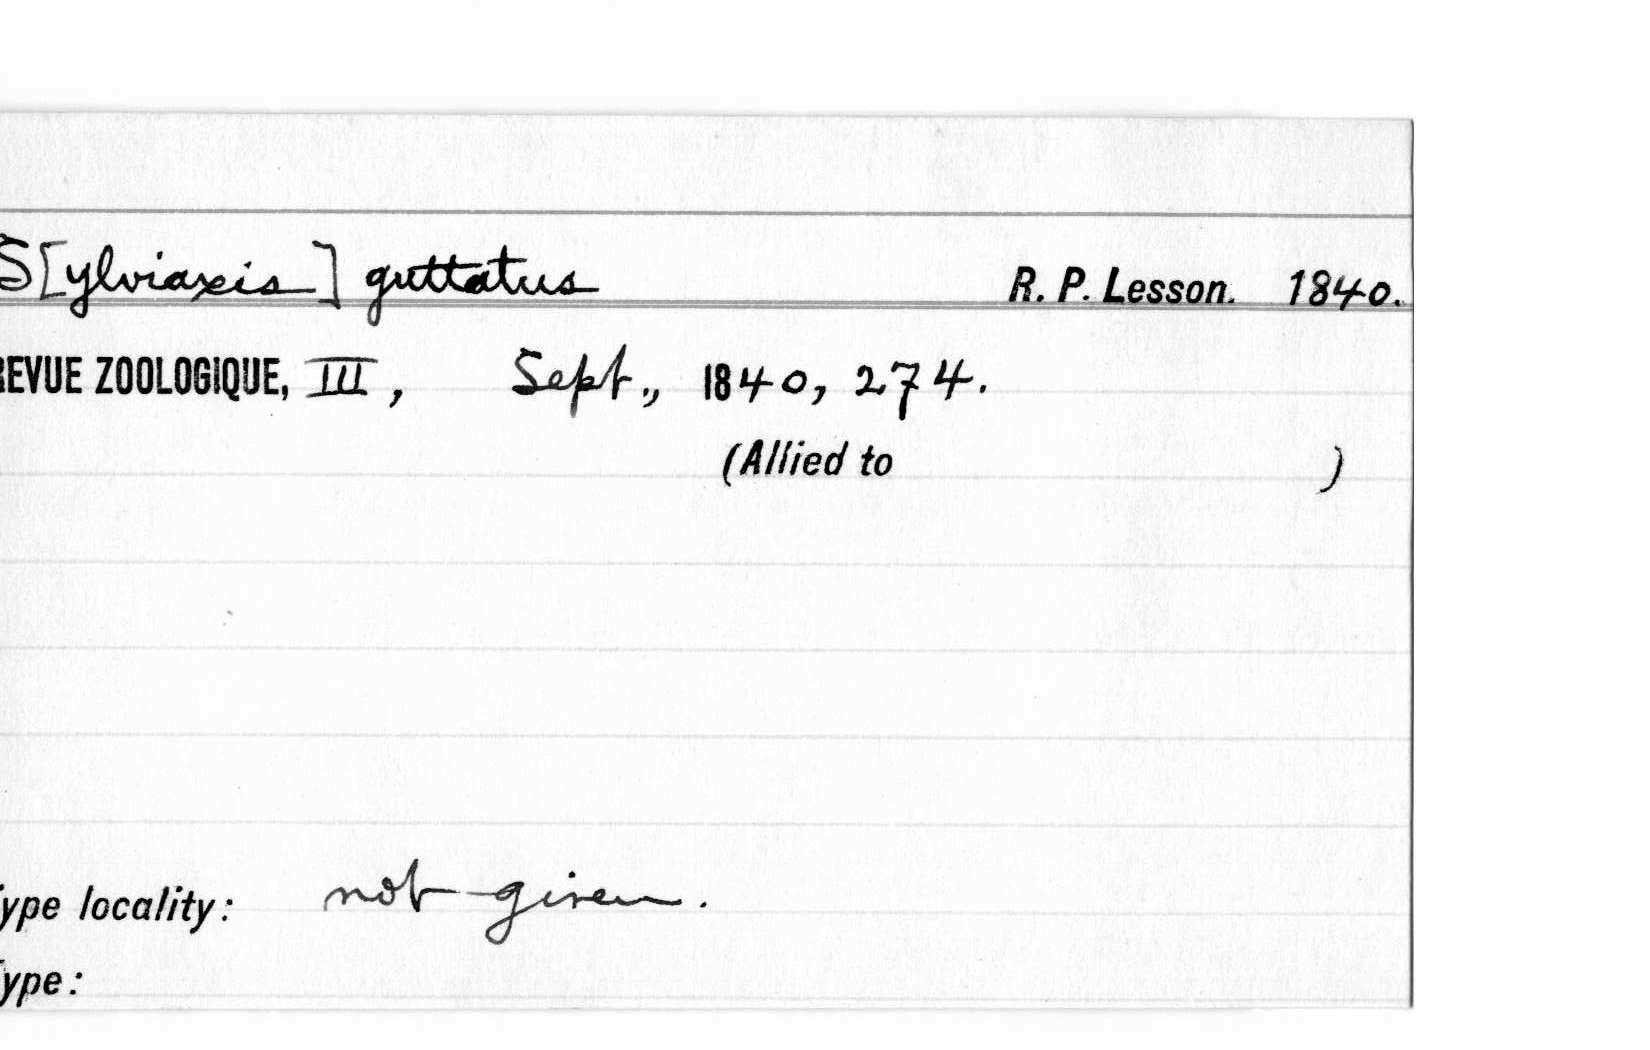 S[ylviaxis] guttatus R. P. Lesson. 1840.
REVUE ZOOLOGIQUE, III, Sept., 1840, 274.
(Allied to )
ype locality: not given.
ype: